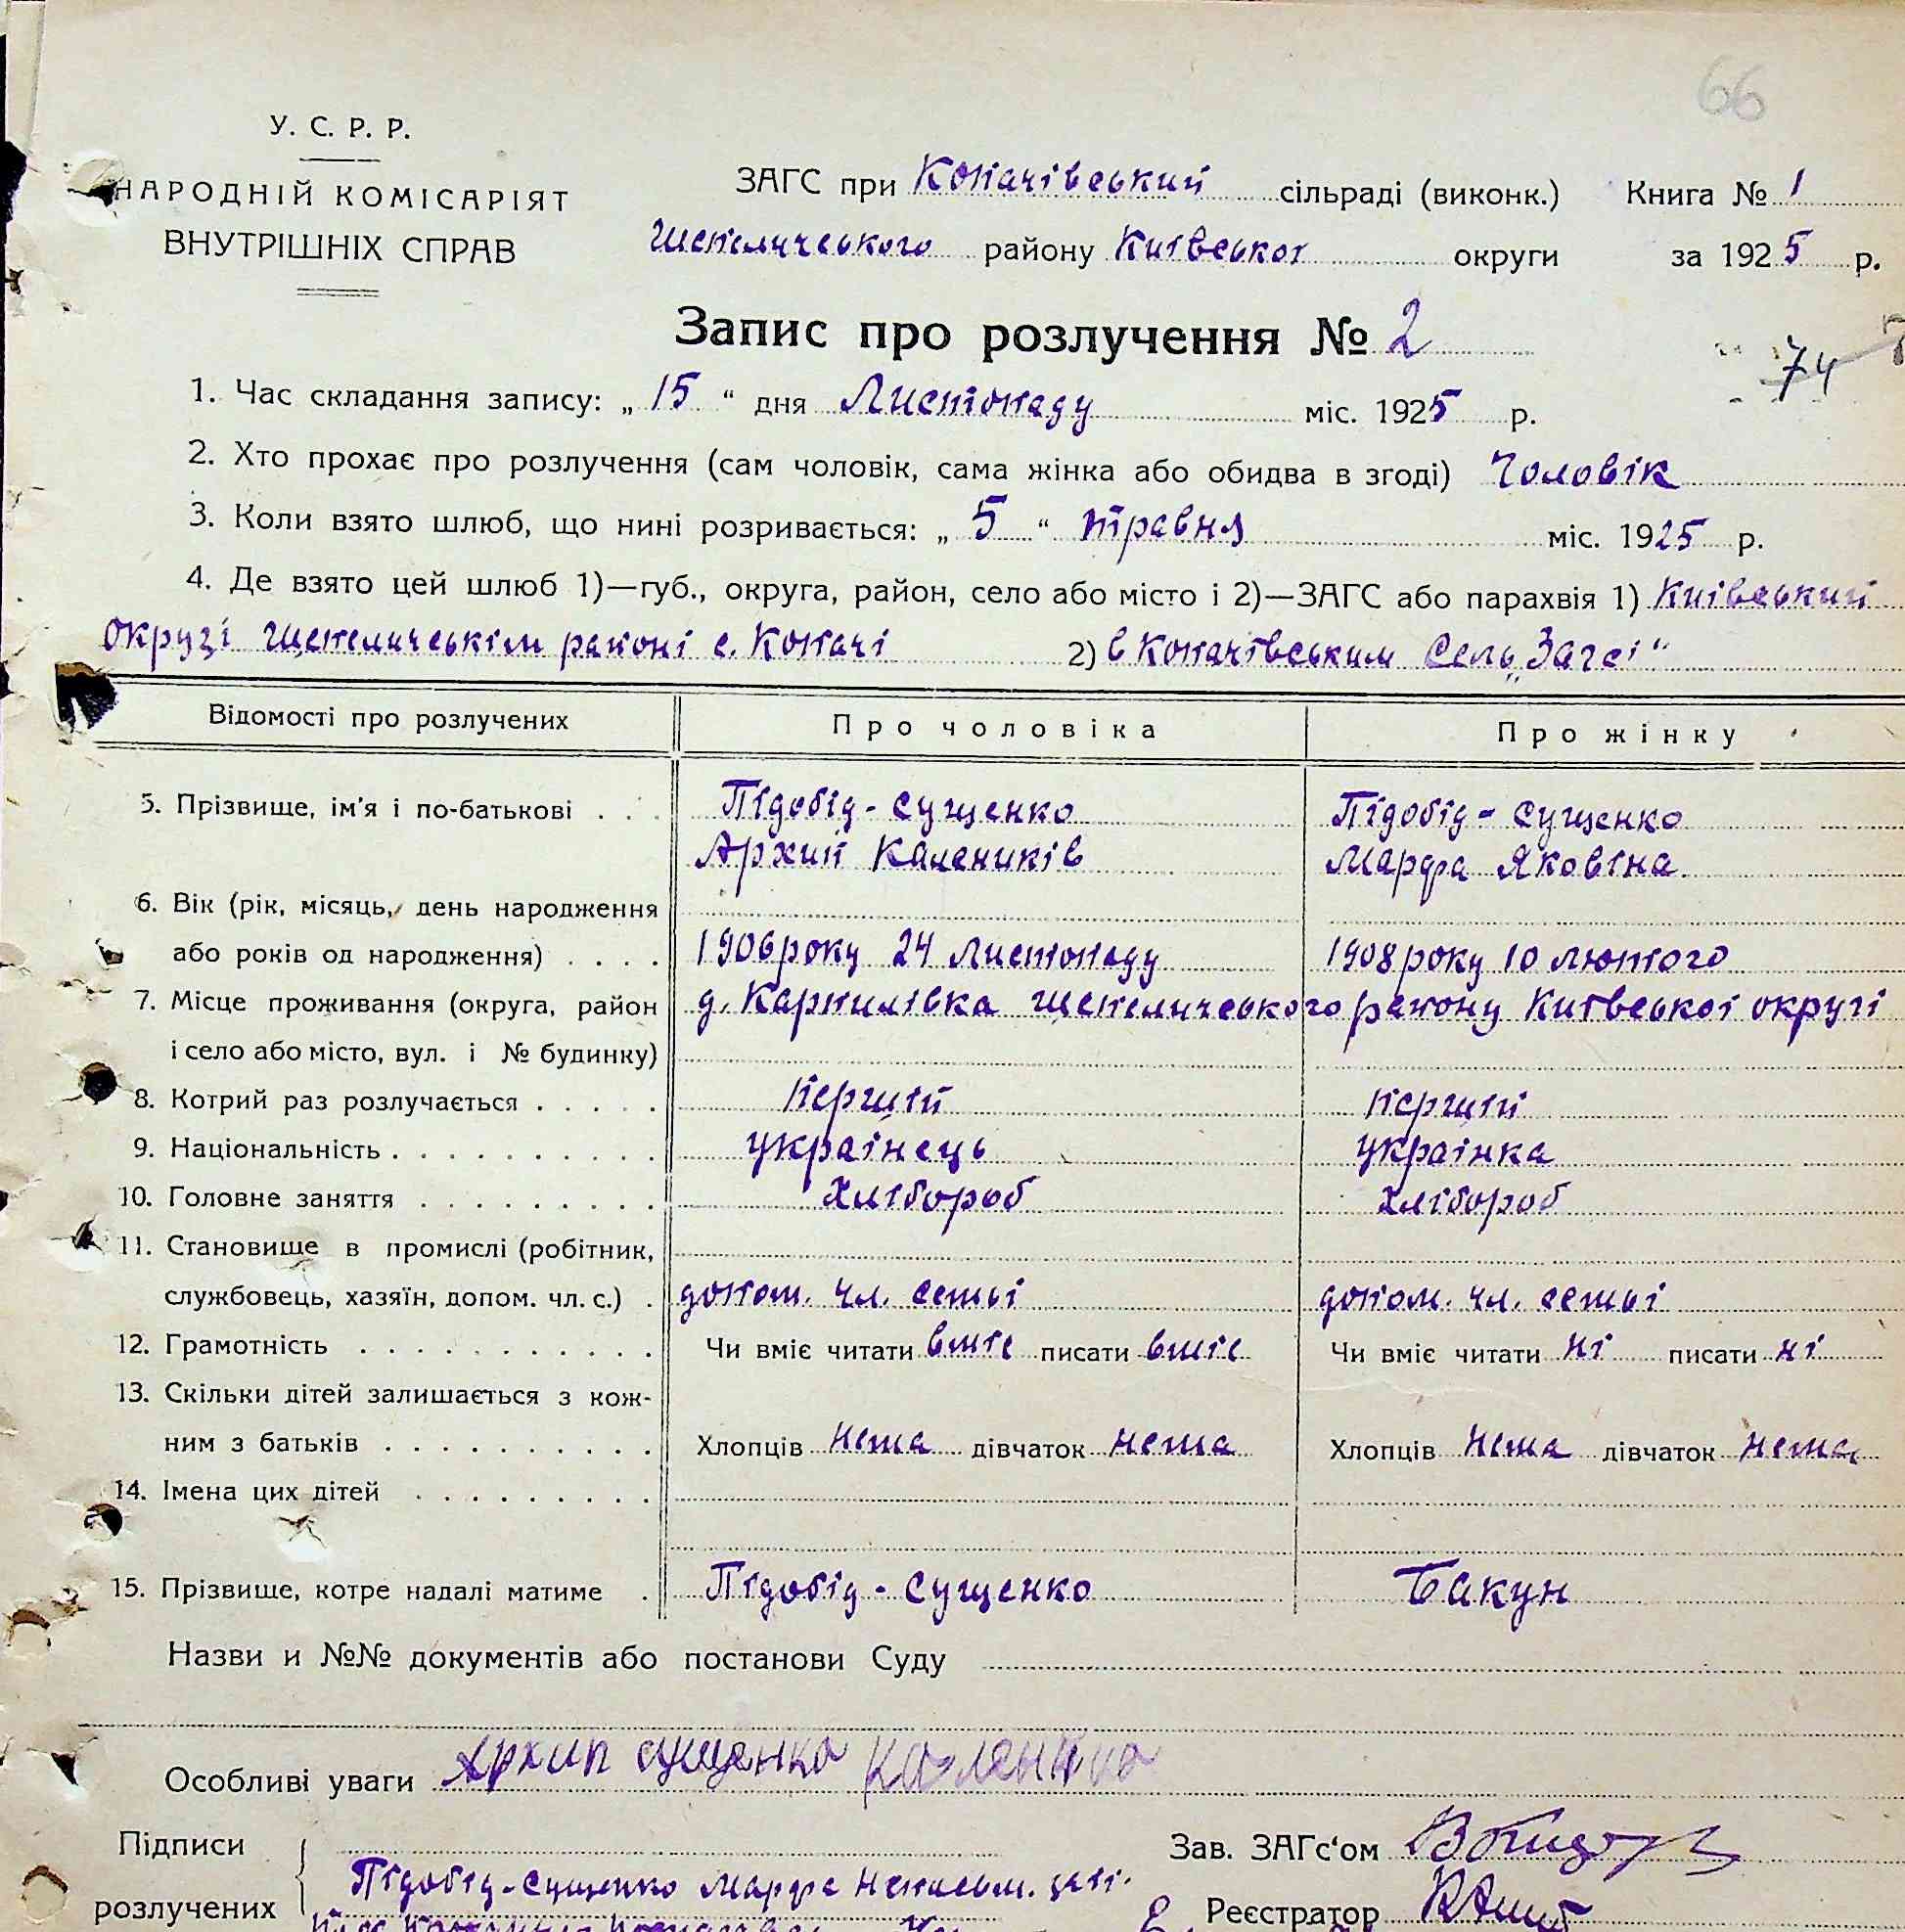 66
У. С. Р. Р.
НАРОДНІЙ КОМІСАРІЯТ
ВНУТРІШНІХ СПРАВ
ЗАГС при Копачівський сільраді (виконк.) Книга № 1
Шепелического району Київської округи за 1925 р.
Запис про розлучення № 2
74
1. Час складання запису: „ 15 “ дня Листопаду міс. 1925 р.
2. Хто прохає про розлучення (сам чоловік, сама жінка або обидва в згоді) Чоловік
3. Коли взято шлюб, що нині розривається: „ 5 “ травня міс. 1925 р.
4. Де взято цей шлюб 1)—губ., округа, район, село або місто і 2)—ЗАГС або парахвія 1) Київський
округі Шепеличськім районі с. Копачі 2) в Копачівським Сель„Загсі“
Відомості про розлучених Про чоловіка Про жінку
5. Прізвище, ім’я і по-батькові . . . Підобід - Сущенко Підобід - Сущенко
Архип Калеників Марфа Яковіна
6. Вік (рік, місяць, день народження
або років од народження) . . . . 1906 року 24 Листопаду 1908 року 10 лютого
7. Місце проживання (округа, район д. Карпилівка Шепелического району Київської округі
і село або місто, вул. і № будинку)
8. Котрий раз розлучається . . . . . першій першій
9. Національність . . . . . . . . . . українець українка
10. Головне заняття . . . . . . . . . Хлібороб хлібороб
11. Становище в промислі (робітник,
службовець, хазяїн, допом. чл. с.) . допом. чл. семьі допом. чл. семьі
12. Грамотність . . . . . . . . . . . Чи вміє читати вміє писати вміє Чи вміє читати ні писати ні
13. Скільки дітей залишається з кож-
ним з батьків . . . . . . . . . . Хлопців нема дівчаток нема Хлопців нема дівчаток нема
14. Імена цих дітей . . . . . . . . .
15. Прізвище, котре надалі матиме . Підобід - Сущенко Бакун
Назви и №№ документів або постанови Суду
Особливі уваги Архип Сущенко
Підписи Зав. ЗАГс‘ом
Підобід-Сущенко Марфа
розлучених Реєстратор